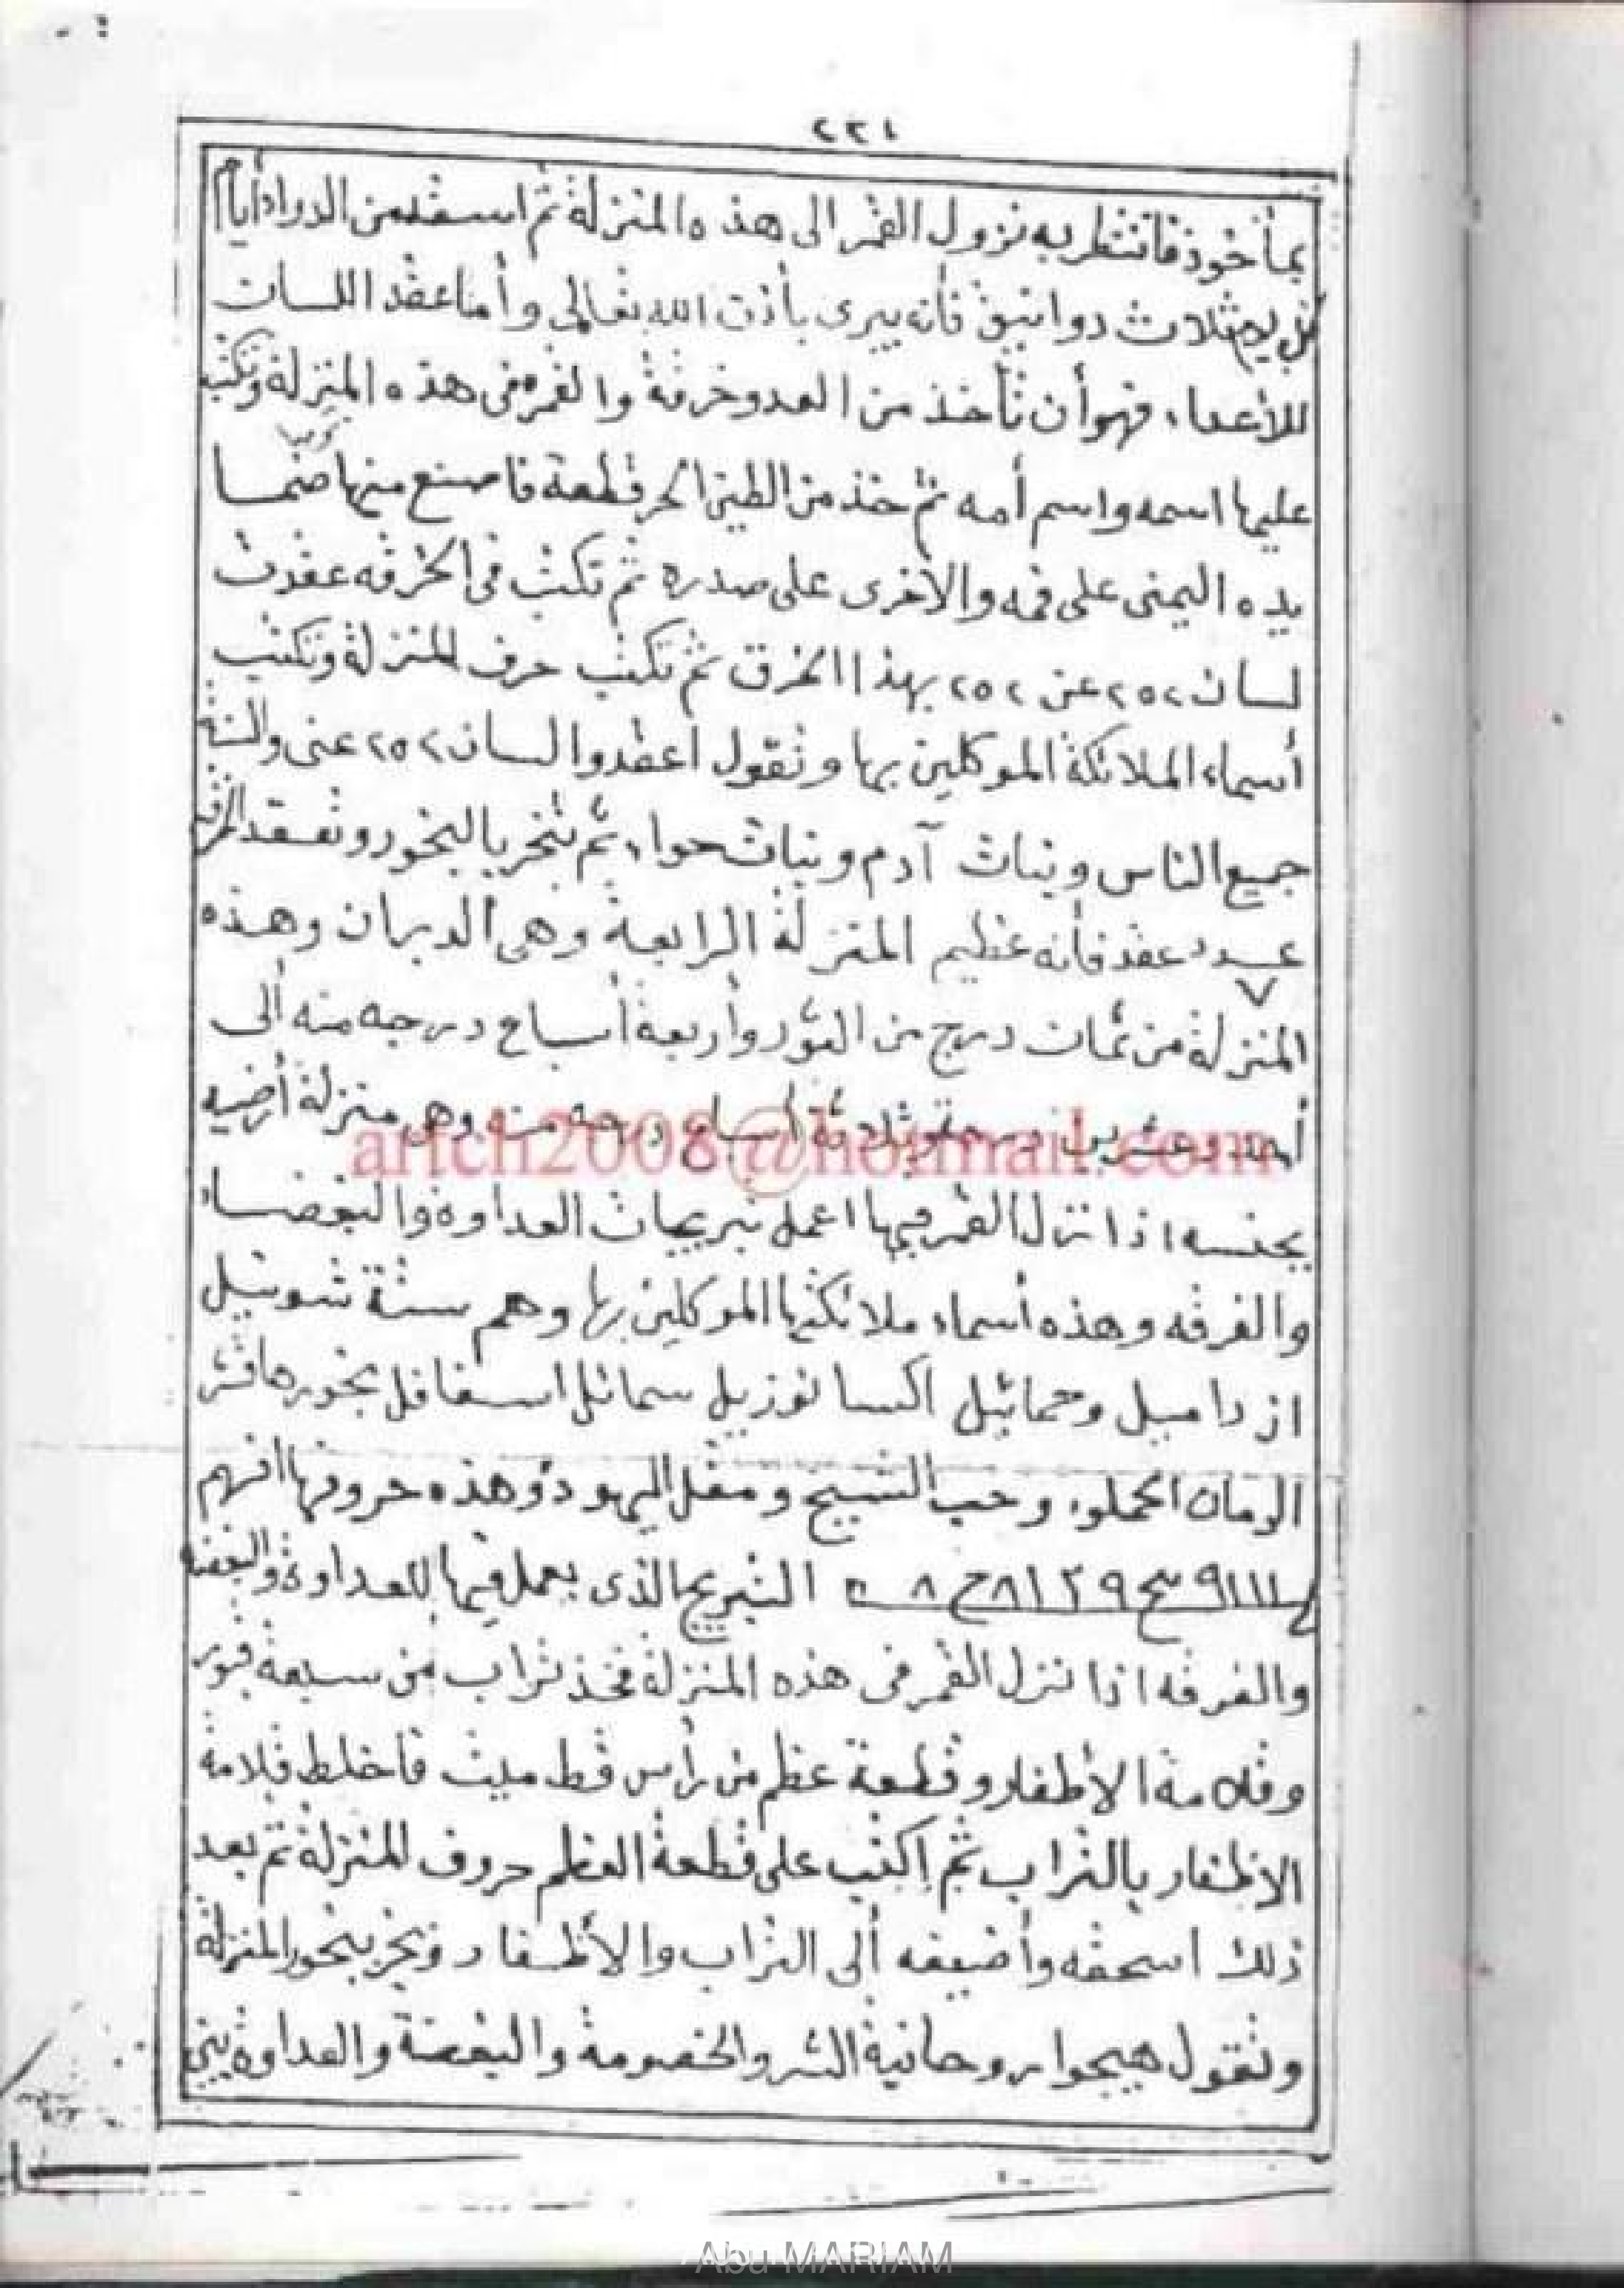 ٢٢١
بمأخوذ فانتظر به نزول القمر الى هذه المنزلة ثم اسقه من الدواء أيام
كل يوم ثلاث دوانيق فأنه يبرى بأذن الله تعالى وأما عقد اللسان
للأعداء فهو أن تأخذ من العدو خرقة والقمر فى هذه المنزلة وتكتب
عليها اسمه واسم أمه ثم خذ من الطين الحر قطعة فاصنع منها صنما
يده اليمنى على فمه والأخرى على صدره ثم تكتب فى الخرقه عقدت
لسان ٢٥٢ عن ٢٥٢ بهذا الخرق ثم تكتب حرف المنزلة وتكتب
أسماء الملائكة الموكلين بها وتقول اعقدوا لسان ٢٥٢ عنى والسنة
جميع الناس وبنات آدم وبنات حواء ثم تبخر بالبخور وتعقد الخرقه
عدد ٧ عقد فأنه عظيم المنزلة الرابعة وهى الدبران وهذه
المنزلة من ثمان درج من الثور وأربعة أسباع درجه منه ألى
أحد وعشرين درجة وثلاثة أسباع درجه منه وهى منزلة أرضيه
يحنسه اذا نزل القمر فيها اعمل نيريجات العداوة والبغضاء
والفرقه وهذه أسماء ملائكتها الموكلين بها وهم ستة شوئيل
از داميل وحمائيل اكسا نوزيل سمائل اسفافل بخورها قشر
الرمان الحلو وحب الشيح ومقل اليهود وهذه حروفها افهم
٩١١١ سح ٨١٣٩ ح ٨ النيريج الذى يعمل فيها للعداوة والبغضه
والفرقه اذا نزل القمر فى هذه المنزلة فخذ تراب من سبعة قبور
وقلامة الأظفار وقطعة عظم من رأس قط ميت فأخلط قلامة
الاظفار بالتراب ثم إكتب على قطعة العظم حروف المنزلة ثم بعد
ذلك اسحقه وأضيفه ألى التراب والأظفار وتبخر ببخور المنزلة
وتقول هيجوا روحانية الشر والخصومة والبغضة والعداوة بين
arfch2008@hotmail.com
Abu MARIAM